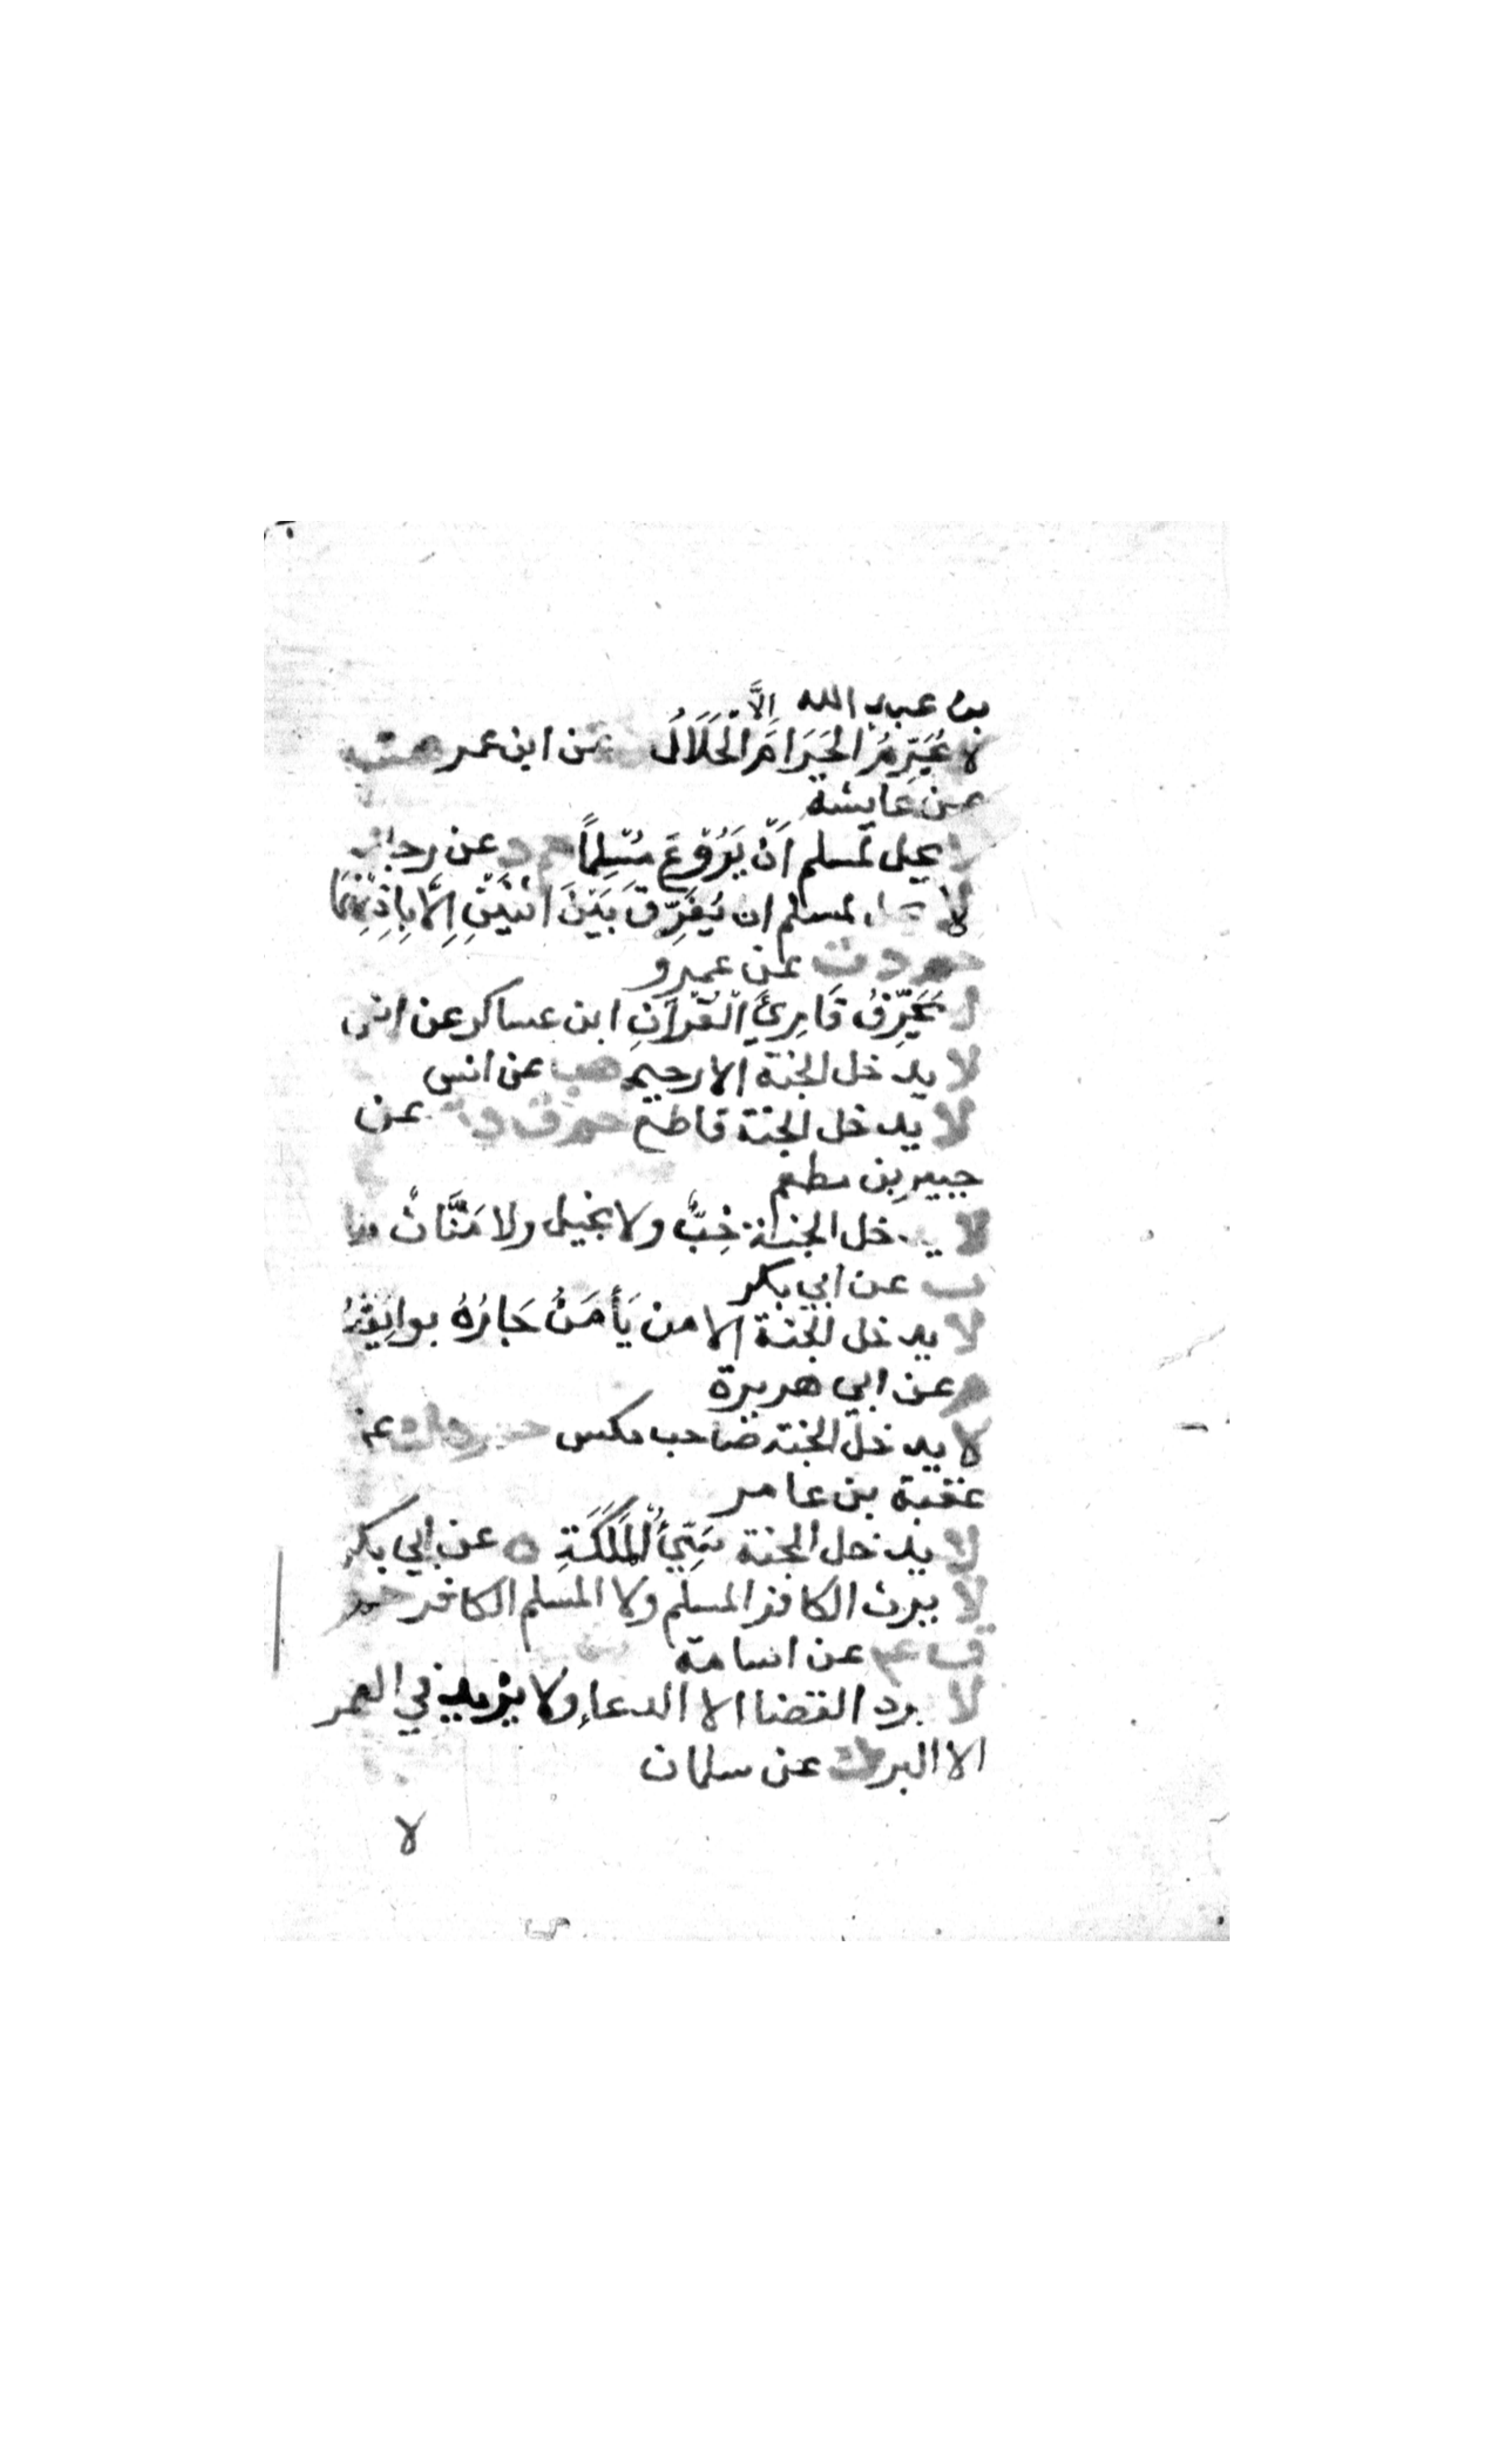 بن عبد الله إلَّا
لا يُحَرِّمُ الحَرَامُ الْحَلَالَ عن ابن عمر هب
عن عايشة
لا يحل لمسلم أَنْ يُرَوِّعَ مُسْلِمًا حم د عن رجال
لا يحل لمسلم ان يُفَرِّقَ بَيْنَ اثْنَيْنِ إِلَّا بِإِذْنِهِمَا
حم د ت عن عمرو
لا يَخْرَفُ قَارِئُ الْقُرْآنِ ابن عساكر عن انس
لا يدخل الجنة الا رحيم هب عن انس
لا يدخل الجنة قاطع حم ق د ت عن
جبير بن مطعم
لا يدخل الجنة خِبٌّ ولا بخيل ولا مَنَّانٌ
ت عن ابي بكر
لا يدخل الجنة الا من يَأْمَنُ جَارُهُ بوائِقَهُ
م عن ابي هريرة
لا يدخل الجنة صاحب مكس حم د ك عن
عقبة بن عامر
لا يدخل الجنة سَيِّئُ الْمَلَكَةِ ه عن ابي بكر
لا يرث الكافر المسلم ولا المسلم الكافر حم
ق عم عن اسامة
لا يرد القضا الا الدعاءِ ولا يزيد في العمر
الا البر ك عن سلمان
لا